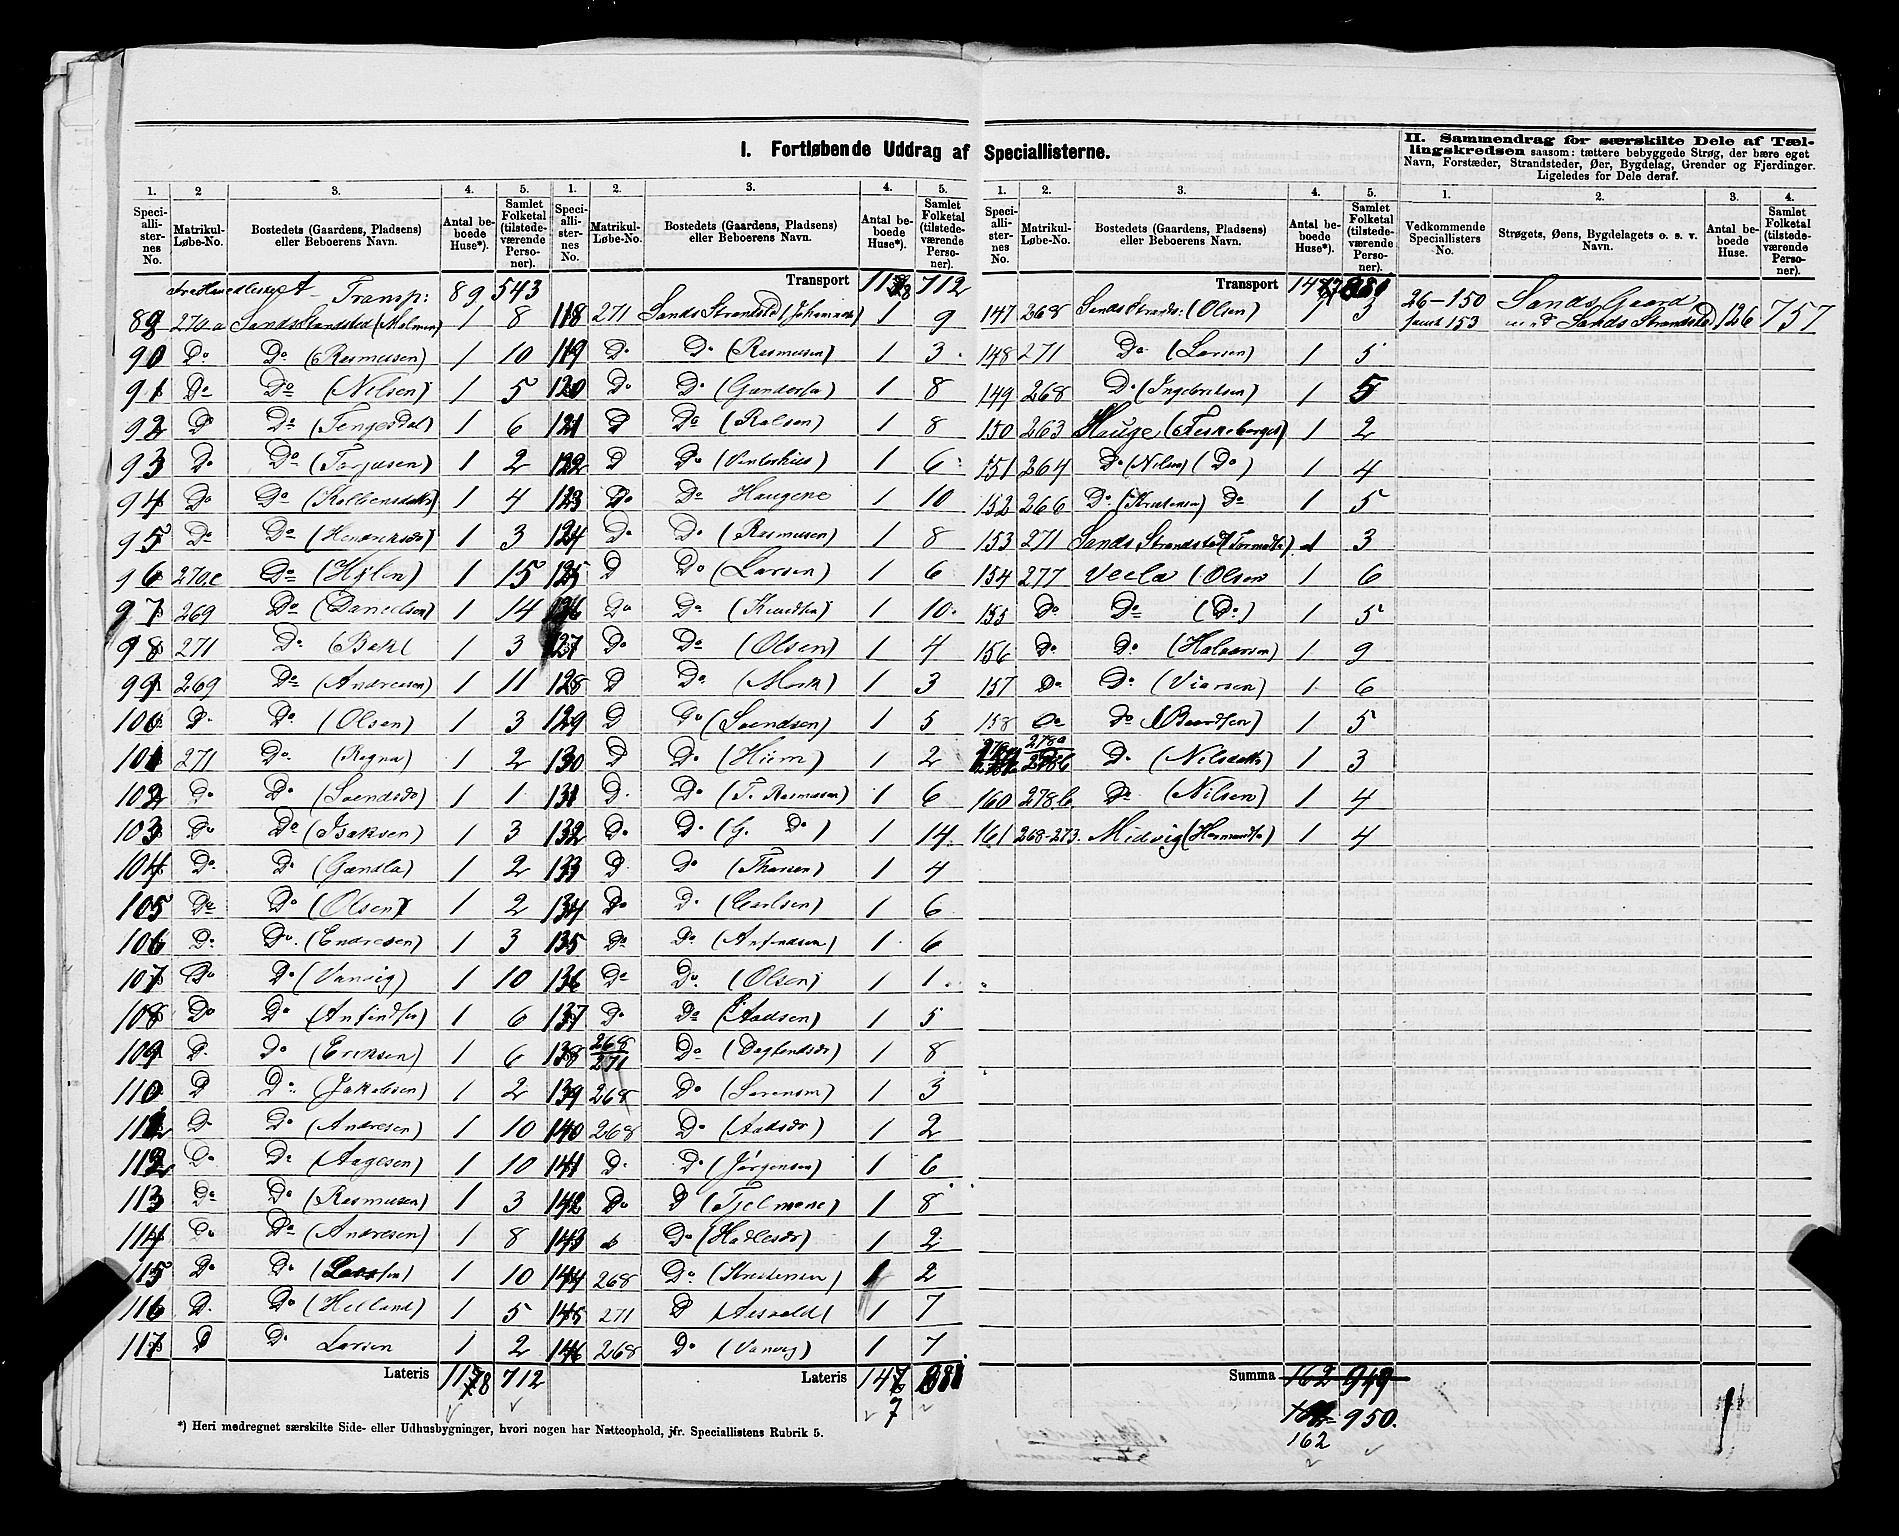 I. Fortløbende Uddrag af Speciallisterne.
II. Sammendrag for særskilte Dele af Tæl-
lingskredsen saasom: tættere bebyggede Strøg, der bære eget
Navn, Forstæder, Strandsteder, Øer, Bygdelag, Grender og Fjerdinger.
Ligeledes for Dele deraf.
1. 2 3. 4. 5. 1. 2. 3. 4. 5. 1. 2. 3. 4. 5. 1. 2. 3. 4.
Speciallisternes No. Matrikul-Løbe-No. Bostedets (Gaardens, Pladsens) eller Beboerens Navn. Antal beboede Huse*). Samlet Folketal (tilstedeværende Personer).
Speciallisternes No. Matrikul-Løbe-No. Bostedets (Gaardens, Pladsens) eller Beboerens Navn. Antal beboede Huse*). Samlet Folketal (tilstedeværende Personer).
Speciallisternes No. Matrikul-Løbe-No. Bostedets (Gaardens, Pladsens) eller Beboerens Navn. Antal beboede Huse*). Samlet Folketal (tilstedeværende Personer).
Vedkommende Speciallisters No. Strøgets, Øens, Bygdelagets o. s. v. Navn. Antal beboede Huse. Samlet Folketal (tilstedeværende Personer).
Transp: 89 543
89 270a Sands Strandsted (Malmen) 1 8
90 Do Do (Rasmusen) 1 10
91 Do Do (Nilsen) 1 5
92 Do Do (Fengesdal) 1 6
93 Do Do (Torjusen) 1 2
94 Do Do 1 4
95 Do Do 1 3
96 270c Do (Hylen) 1 15
97 269 Do (Danielsen) 1 14
98 271 Do (Bakl 1 3
99 269 Do (Andreasen) 1 11
100 D Do (Olsen) 1 3
101 271 Do (Ragna) 1 2
102 Do Do 1 1
103 Do Do (Isaksen) 1 3
104 Do Do 1 2
105 Do Do (Olsen) 1 2
106 Do Do (Endresen) 1 3
107 Do Do (Vanvig) 1 10
108 Do Do 1 6
109 D Do (Eriksen) 1 6
110 D Do (Jakobsen) 1 2
111 Do Do (Andresen) 1 10
112 Do Do (Aagesen) 1 10
113 Do Do (Rasmusen) 1 3
114 Do Do (Andresen) 1 8
115 Do Do 1 10
116 D Do (Helland) 1 5
117 D Do Larsen 1 2
Lateris 118 712
Transport 118 712
118 271 Sands Strandsted 1 9
119 Do Do (Rasmusen) 1 3
120 Do Do 1 8
121 D Do 1 8
122 D Do (Vinterhus) 1 6
123 Do Do Haugene 1 10
124 Do Do (Rasmusen) 1 8
125 D Do (Larsen) 1 6
126 Do Do 1 10
127 Do Do (Olsen) 1 4
128 D Do (Mork) 1 3
129 D Do (Svendsen) 1 5
130 D Do (Hiim) 1 2
131 D Do (T. Rasmusen) 1 6
132 Do Do (G. Do) 1 14
133 D Do 1 4
134 Do Do (Carlsen) 1 6
135 Do Do (Anfindsen) 1 6
136 Do Do (Olsen) 1 1
137 Do Do (Aadsen) 1 5
138 268/271 Do 1 8
139 268 Do (Sørensen) 1 3
140 268 Do 1 2
141 D Do (Jørgensen) 1 6
142 Do D (Tjelmene) 1 8
143 Do 1 2
144 268 Do (Kristensen) 1 2
145 271 D 1 7
146 268 Do (Vanvig) 1 7
Lateris 147 881
7
Transport 147 881
147 268 Sands Strands: (Olsen) 1 3
148 271 Do (Larsen) 1 5
149 268 Do (Ingebretsen) 1 5
150 263 Hauge 1 2
151 264 Do (Nilsen) (Do) 1 4
152 266 Do (Kristensen) Do 1 5
153 271 Sands Strandsted 1 3
154 277 Veela (Olsen 1 6
155 Do Do (Do) 1 5
156 Do Do (Halvorsen) 1 9
157 Do Do 1 6
158 Do Do 1 5
278a 278b Do (Nilsdatter) 1 3
160 278b Do (Nilsen) 1 4
161 268-273. Midvig 1 4
Summa 162 949
950.
162
26–150 Sands Gaard
samt 153 med Sands Strandsted 126 757
*) Heri medregnet særskilte Side- eller Udhusbygninger, hvori nogen har Natteophold, jfr. Speciallistens Rubrik 5.